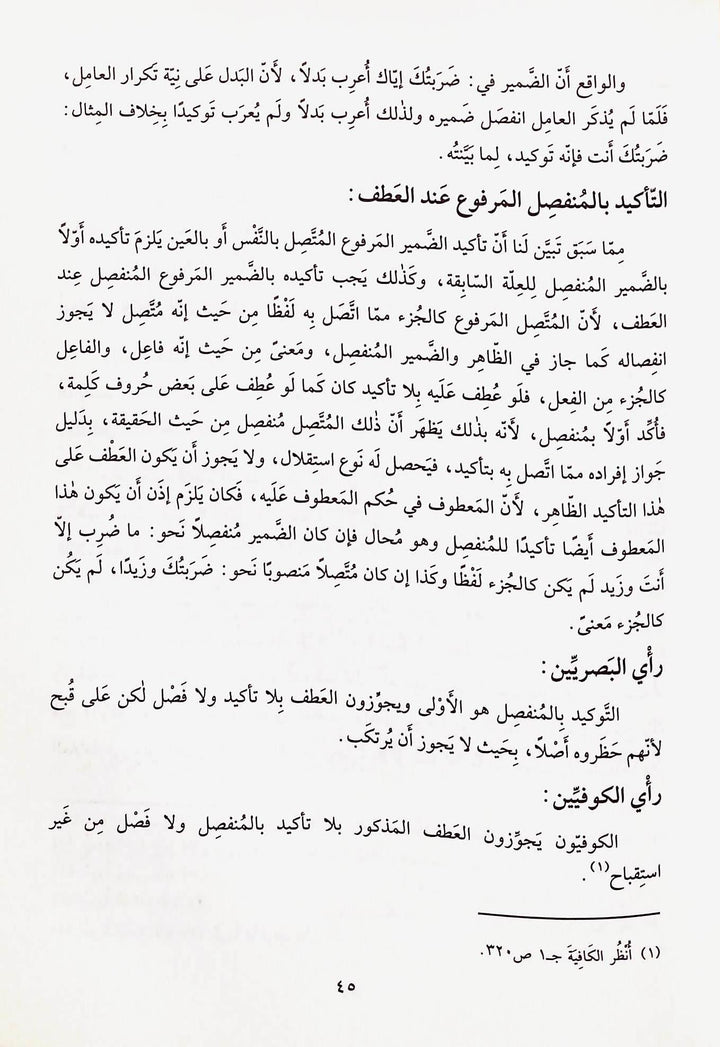 والواقع أَنّ الضَّمير في: ضَرَبتُكَ إيّاك أُعرِب بَدلاً، لأَنّ البَدل عَلى نِيّة تَكرار العامِل،
فَلَمّا لَم يُذكَر العامِل انفصَل ضَميره ولذٰلك أُعرِب بَدلاً ولَم يُعرَب تَوكيدًا بِخِلاف المِثال:
ضَرَبتُكَ أَنت فإنّه تَوكيد، لِما بَيَّنتُه.
التّأكيد بالمُنفصِل المَرفوع عَند العَطف:
مِمّا سَبَق تَبيَّن لَنا أَنّ تأكيد الضَّمير المَرفوع المُتَّصِل بالنَّفْس أَو بالعَين يَلزمَ تأكيده أَوّلاً
بالضَّمير المُنفصِل لِلعِلّة السّابِقة، وكَذٰلك يَجب تأكيده بالضَّمير المَرفوع المُنفصِل عِند
العَطف، لأَنّ المُتَّصِل المَرفوع كالجُزء ممّا اتَّصَل بِه لَفْظًا مِن حَيث إنّه مُتَّصِل لا يَجوز
انفِصاله كَما جاز في الظّاهِر والضَّمير المُنفصِل، ومَعنىً مِن حَيث إنّه فاعِل، والفاعِل
كالجُزء مِن الفعل، فلَو عُطِف عَلَيه بِلا تأكيد كان كَما لَو عُطِف عَلى بَعض حُروف كَلِمة،
فأُكِّد أَوّلاً بمُنفصِل، لأَنّه بذٰلك يَظهَر أَنّ ذٰلك المُتَّصِل مُنفصِل مِن حَيث الحَقيقة، بِدَليل
جَواز إفراده ممّا اتَّصل بِه بتأكيد، فيَحصل لَه نَوع استِقلال، ولا يَجوز أَن يَكون العَطْف عَلى
هٰذا التأكيد الظّاهِر، لأَنّ المَعطوف في حُكم المَعطوف عَلَيه، فَكان يَلزم إذَن أَن يَكون هٰذا
المَعطوف أَيضًا تأكيدًا للمُنفصِل وهو مُحال فإن كان الضَّمير مُنفصِلاً نَحو: ما ضُرِب إلاّ
أَنتَ وزَيد لَم يَكن كالجُزء لَفْظًا وكَذا إن كان مُتَّصِلاً مَنصوبًا نَحو: ضَرَبتُكَ وزَيدًا، لَم يَكُن
كالجُزء مَعنىً.
رأْي البَصريِّين:
التَّوكيد بِالمُنفصِل هو الأَوْلى ويجوِّزون العَطف بِلا تأكيد ولا فَصْل لٰكن عَلى قُبح
لأنّهم حَظَروه أَصْلاً، بِحَيث لا يَجوز أَن يُرتكَب.
رأْي الكوفيِّين:
الكوفيّون يَجوِّزون العَطف المَذكور بلا تأكيد بالمُنفصِل ولا فَصْل مِن غَير
استِقباح(١).
(١) اُنْظُر الكَافِيَة جـ١ ص٣٢٠.
٤٥